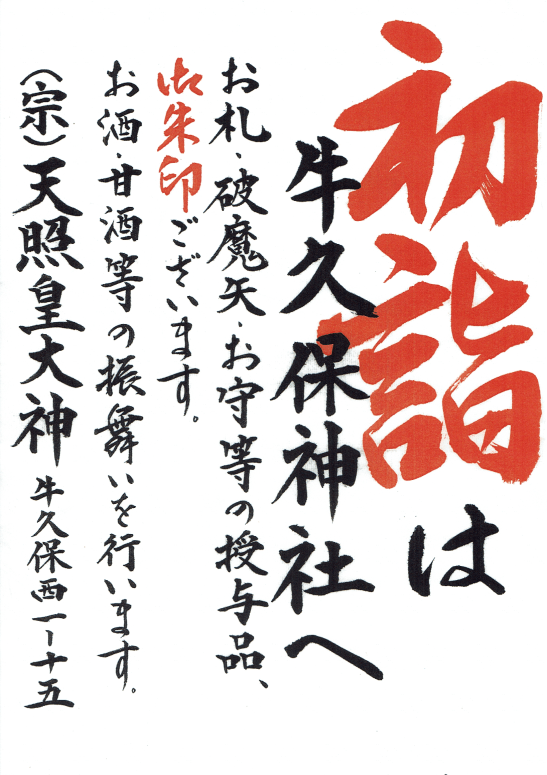 初詣は
牛久保神社へ
お札、破魔矢、お守等の授与品、
御朱印ございます。
お酒、甘酒等の振舞いを行います。
(宗)天照皇大神 牛久保西一ー十五